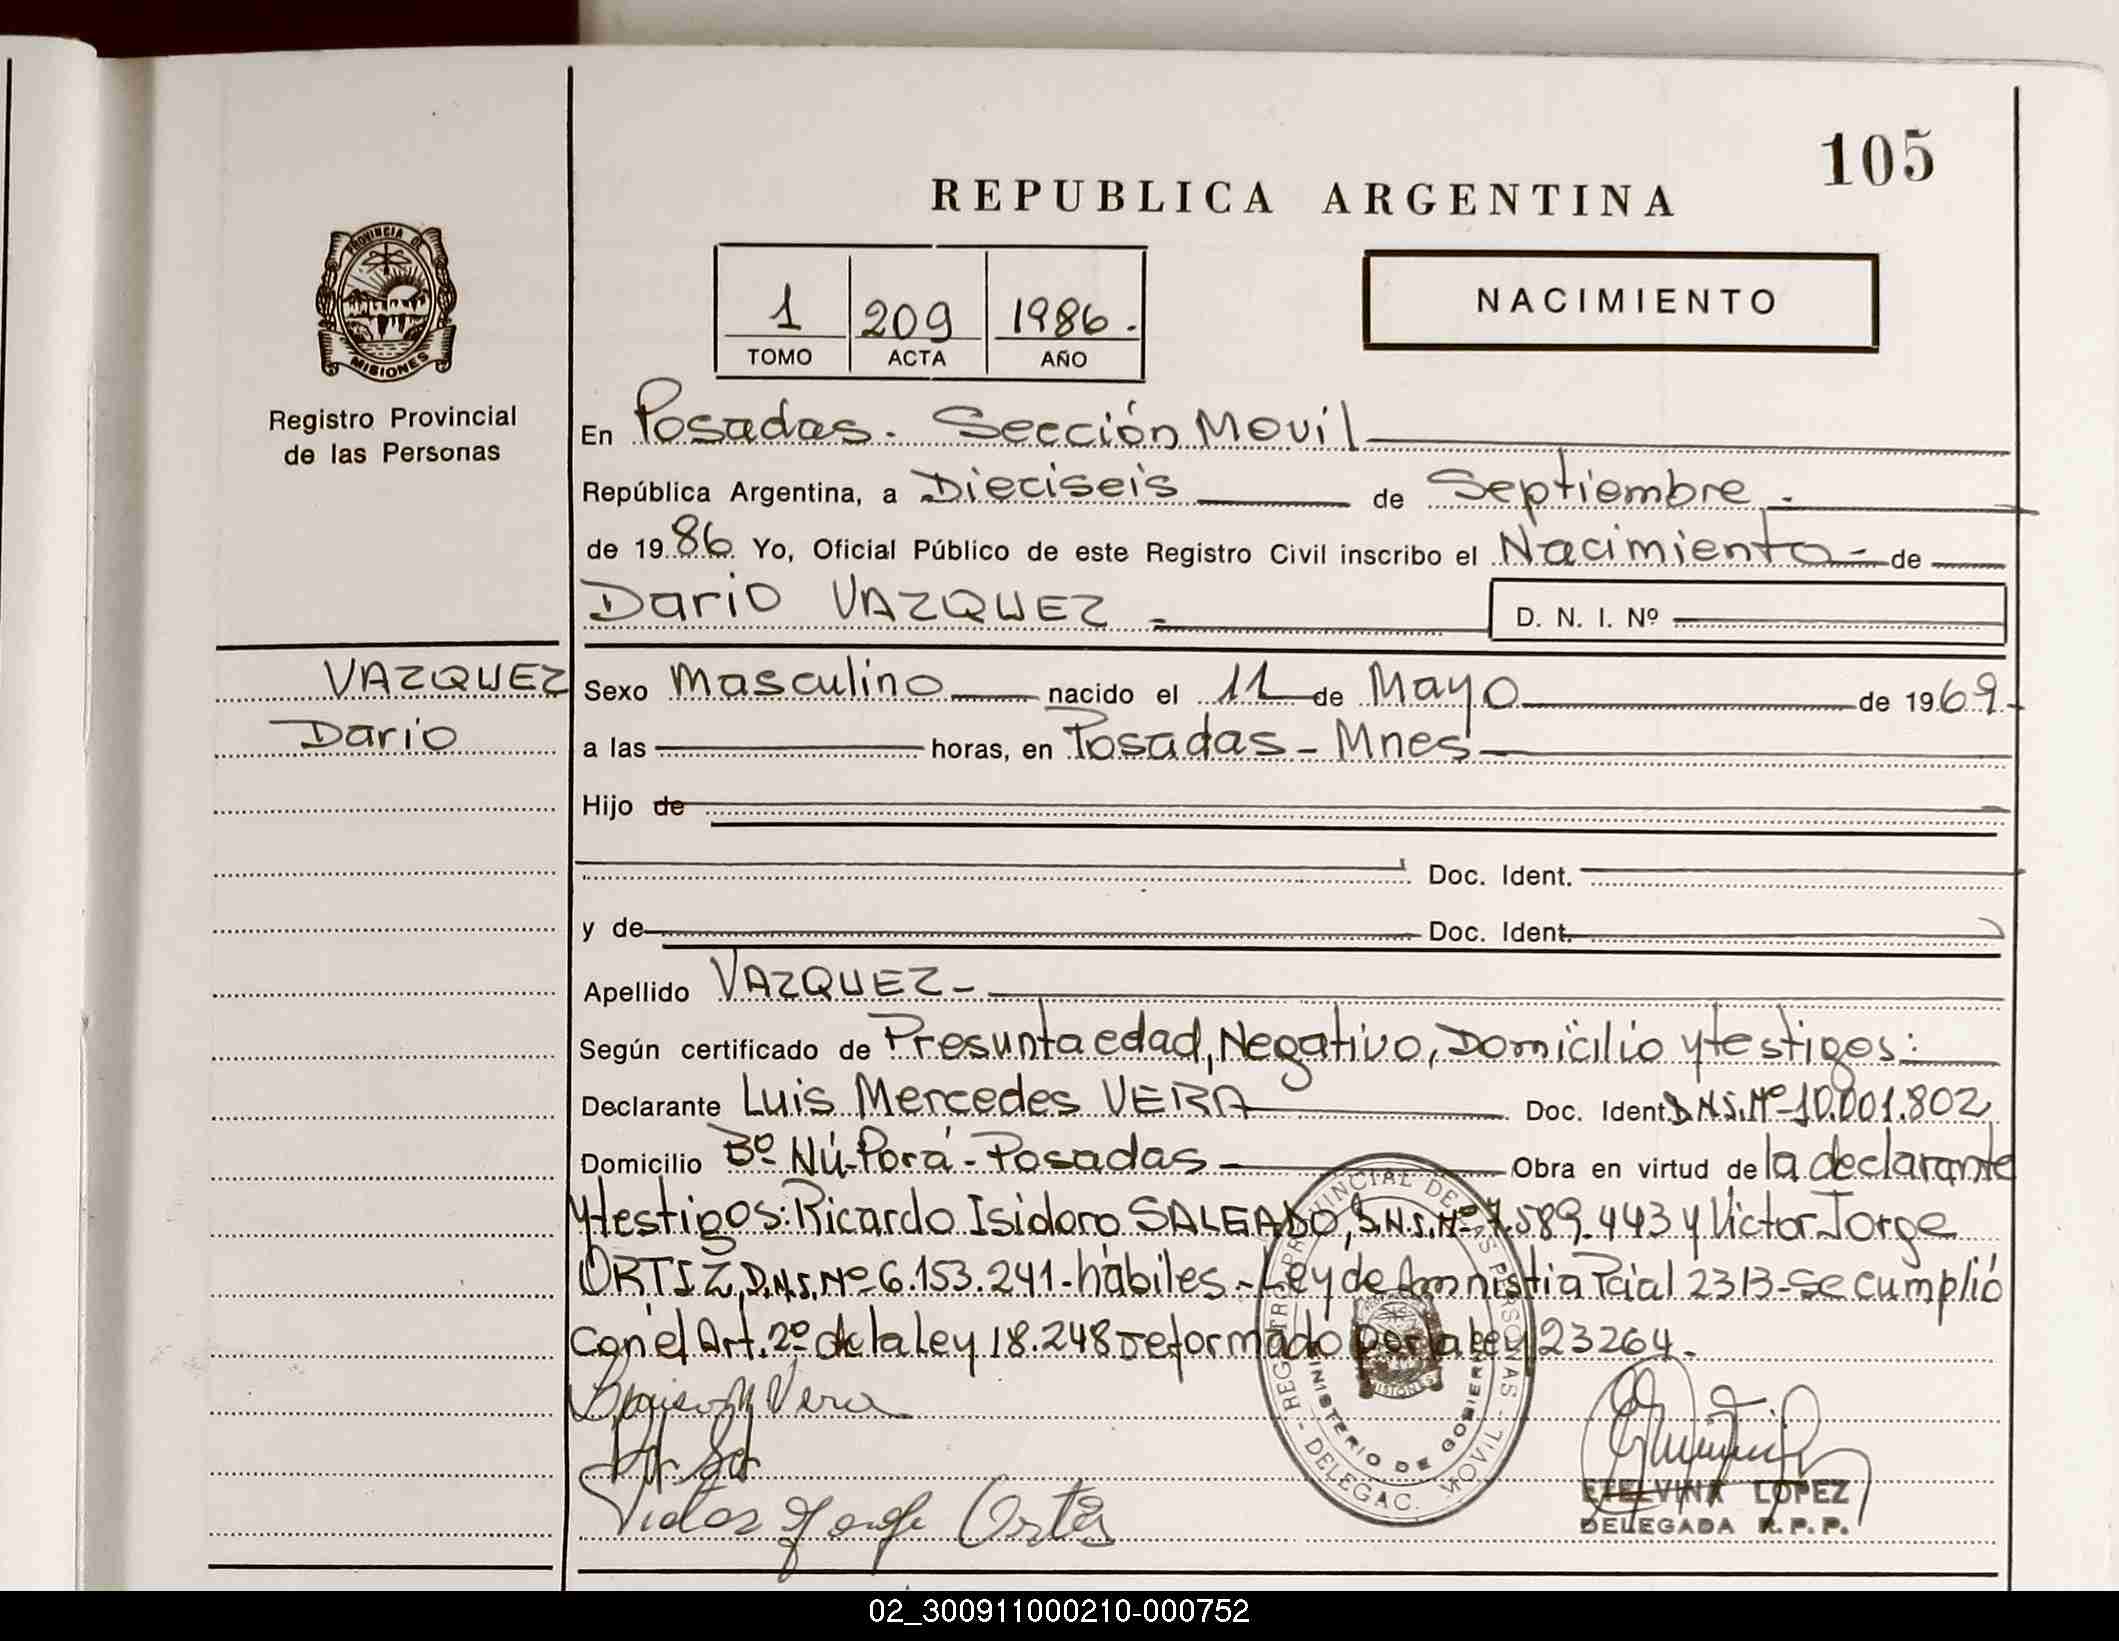 105
REPUBLICA ARGENTINA
PROVINCIA DE
MISIONES
Registro Provincial
de las Personas
1 209 1986.
TOMO ACTA AÑO
NACIMIENTO
En Posadas. Sección Movil
República Argentina, a Dieciseis de Septiembre.
de 1986. Yo, Oficial Público de este Registro Civil inscribo el Nacimiento- de
Dario VAZQUEZ - D. N. I. Nº
VAZQUEZ
Dario
Sexo Masculino nacido el 11 de Mayo de 1969.
a las horas, en Posadas - Mnes
Hijo de
Doc. Ident.
y de Doc. Ident.
Apellido VAZQUEZ-
Según certificado de Presunta edad, Negativo, Domicilio y testigos:
Declarante Luis Mercedes VERA Doc. Ident. D.N.I. Nº-10.001.802
Domicilio Bº Ñú-Porá-Posadas Obra en virtud de la declarante
y testigos: Ricardo Isidoro SALGADO, D.N.I. Nº 7.589.443 y Victor Jorge
ORTIZ, D.N.I. Nº 6.153.241-hábiles.-Ley de Amnistia Pcial 2313-Se cumplió
con el Art. 2º de la Ley 18.248 reformado por la Ley 23264.
Vera
Victor Jorge Ortiz
REGISTRO PROVINCIAL DE LAS PERSONAS - DELEGAC. MOVIL -
MINISTERIO DE GOBIERNO
MISIONES
ETELVINA LOPEZ
DELEGADA R.P.P.
02_300911000210-000752